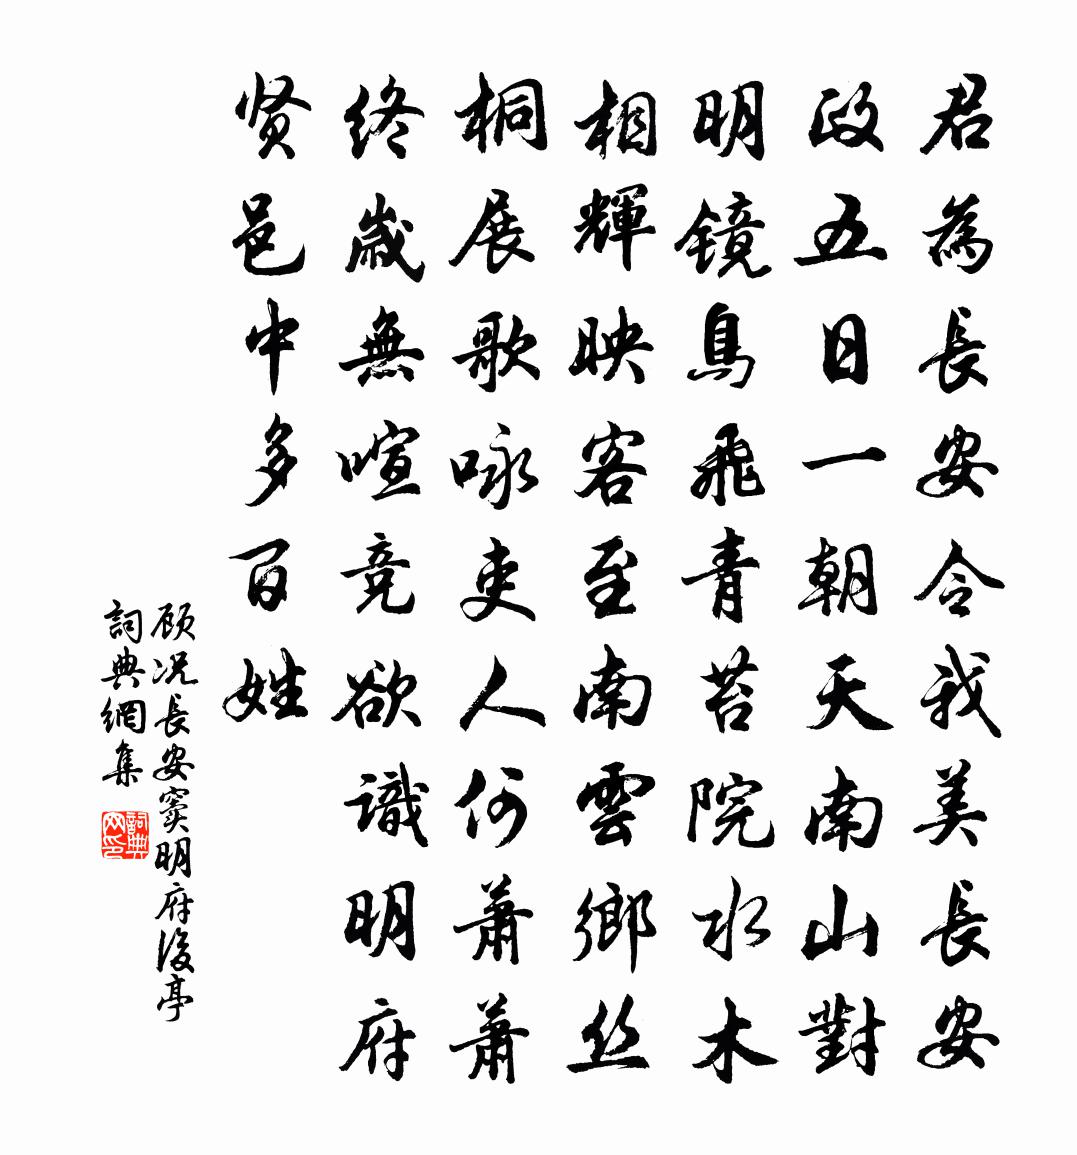 君為長安令我美長安
政五日一朝天南山對
明鏡鳥飛青苔院水木
相輝映客至南雲鄉丝
桐展歌咏吏人何蕭蕭
终歳無喧竞欲識明府
贤邑中多百姓
顾况長安窦明府後亭
詞典網集
詞典网印